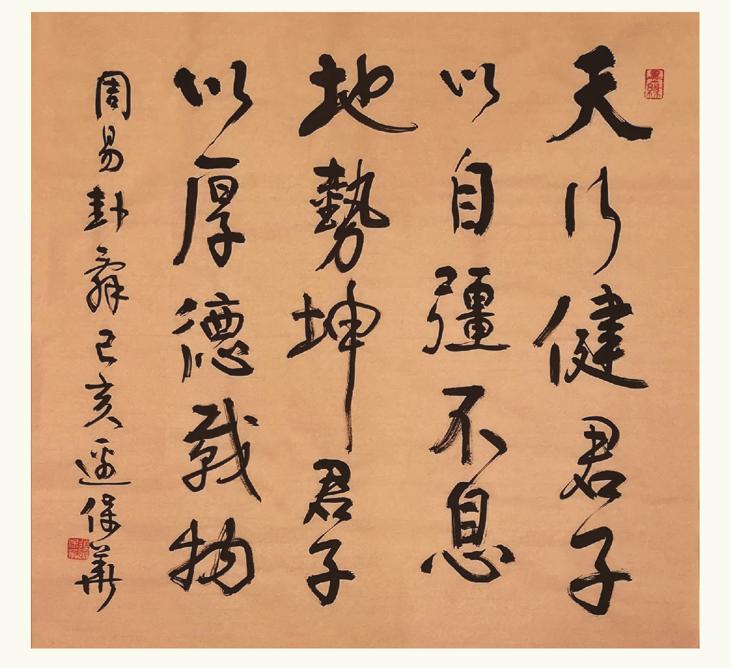 天行健君子
以自彊不息
地勢坤君子
以厚德載物
周易卦辭己亥保華